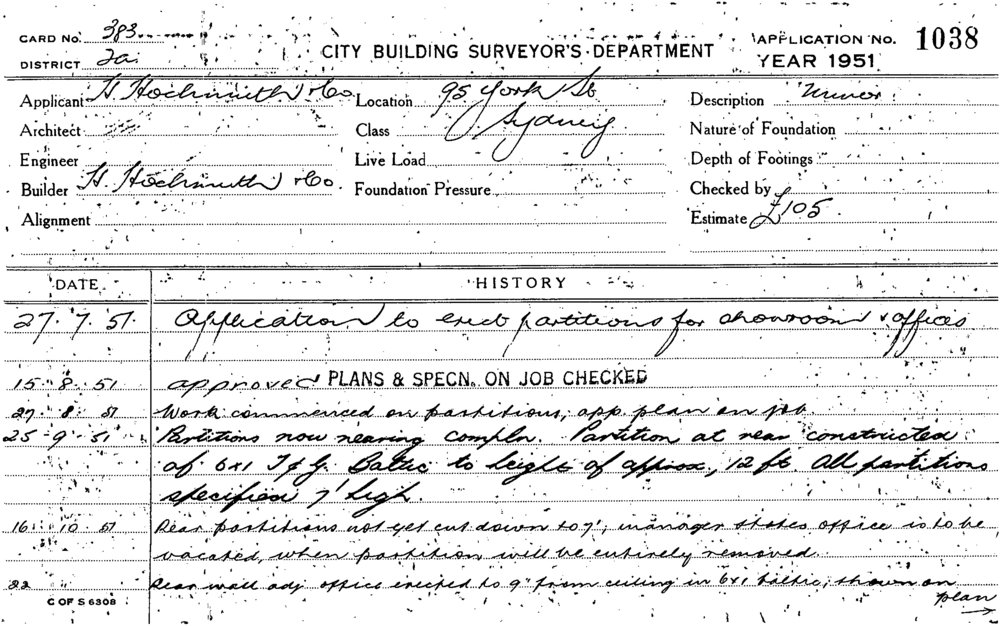 CARD No. 383
DISTRICT 2a
CITY BUILDING SURVEYOR'S DEPARTMENT
APPLICATION No. 1038
YEAR 1951
Applicant H Hochmuth & Co
Location 95 York St
Description Minor
Architect
Class Sydney
Nature of Foundation
Engineer
Live Load
Depth of Footings
Builder H. Hochmuth & Co.
Foundation Pressure
Checked by
Alignment
Estimate £105
DATE HISTORY
27. 7. 51. Application to erect partitions for showroom & offices
15. 8. 51 approved PLANS & SPECN. ON JOB CHECKED
27. 8. 51 Work commenced on partitions, app. plan on job.
25-9-51 Partitions now nearing compln. Partition at rear constructed
of 6x1 T & G. Baltic to height of approx, 12 ft All partitions
specified 7' high.
16. 10. 51 Rear partitions not yet cut down to 7', manager states office is to be
vacated, when partition will be entirely removed.
22 " " Rear wall adj office erected to 9" from ceiling in 6x1 baltic, shown on
plan →
C OF S 6308